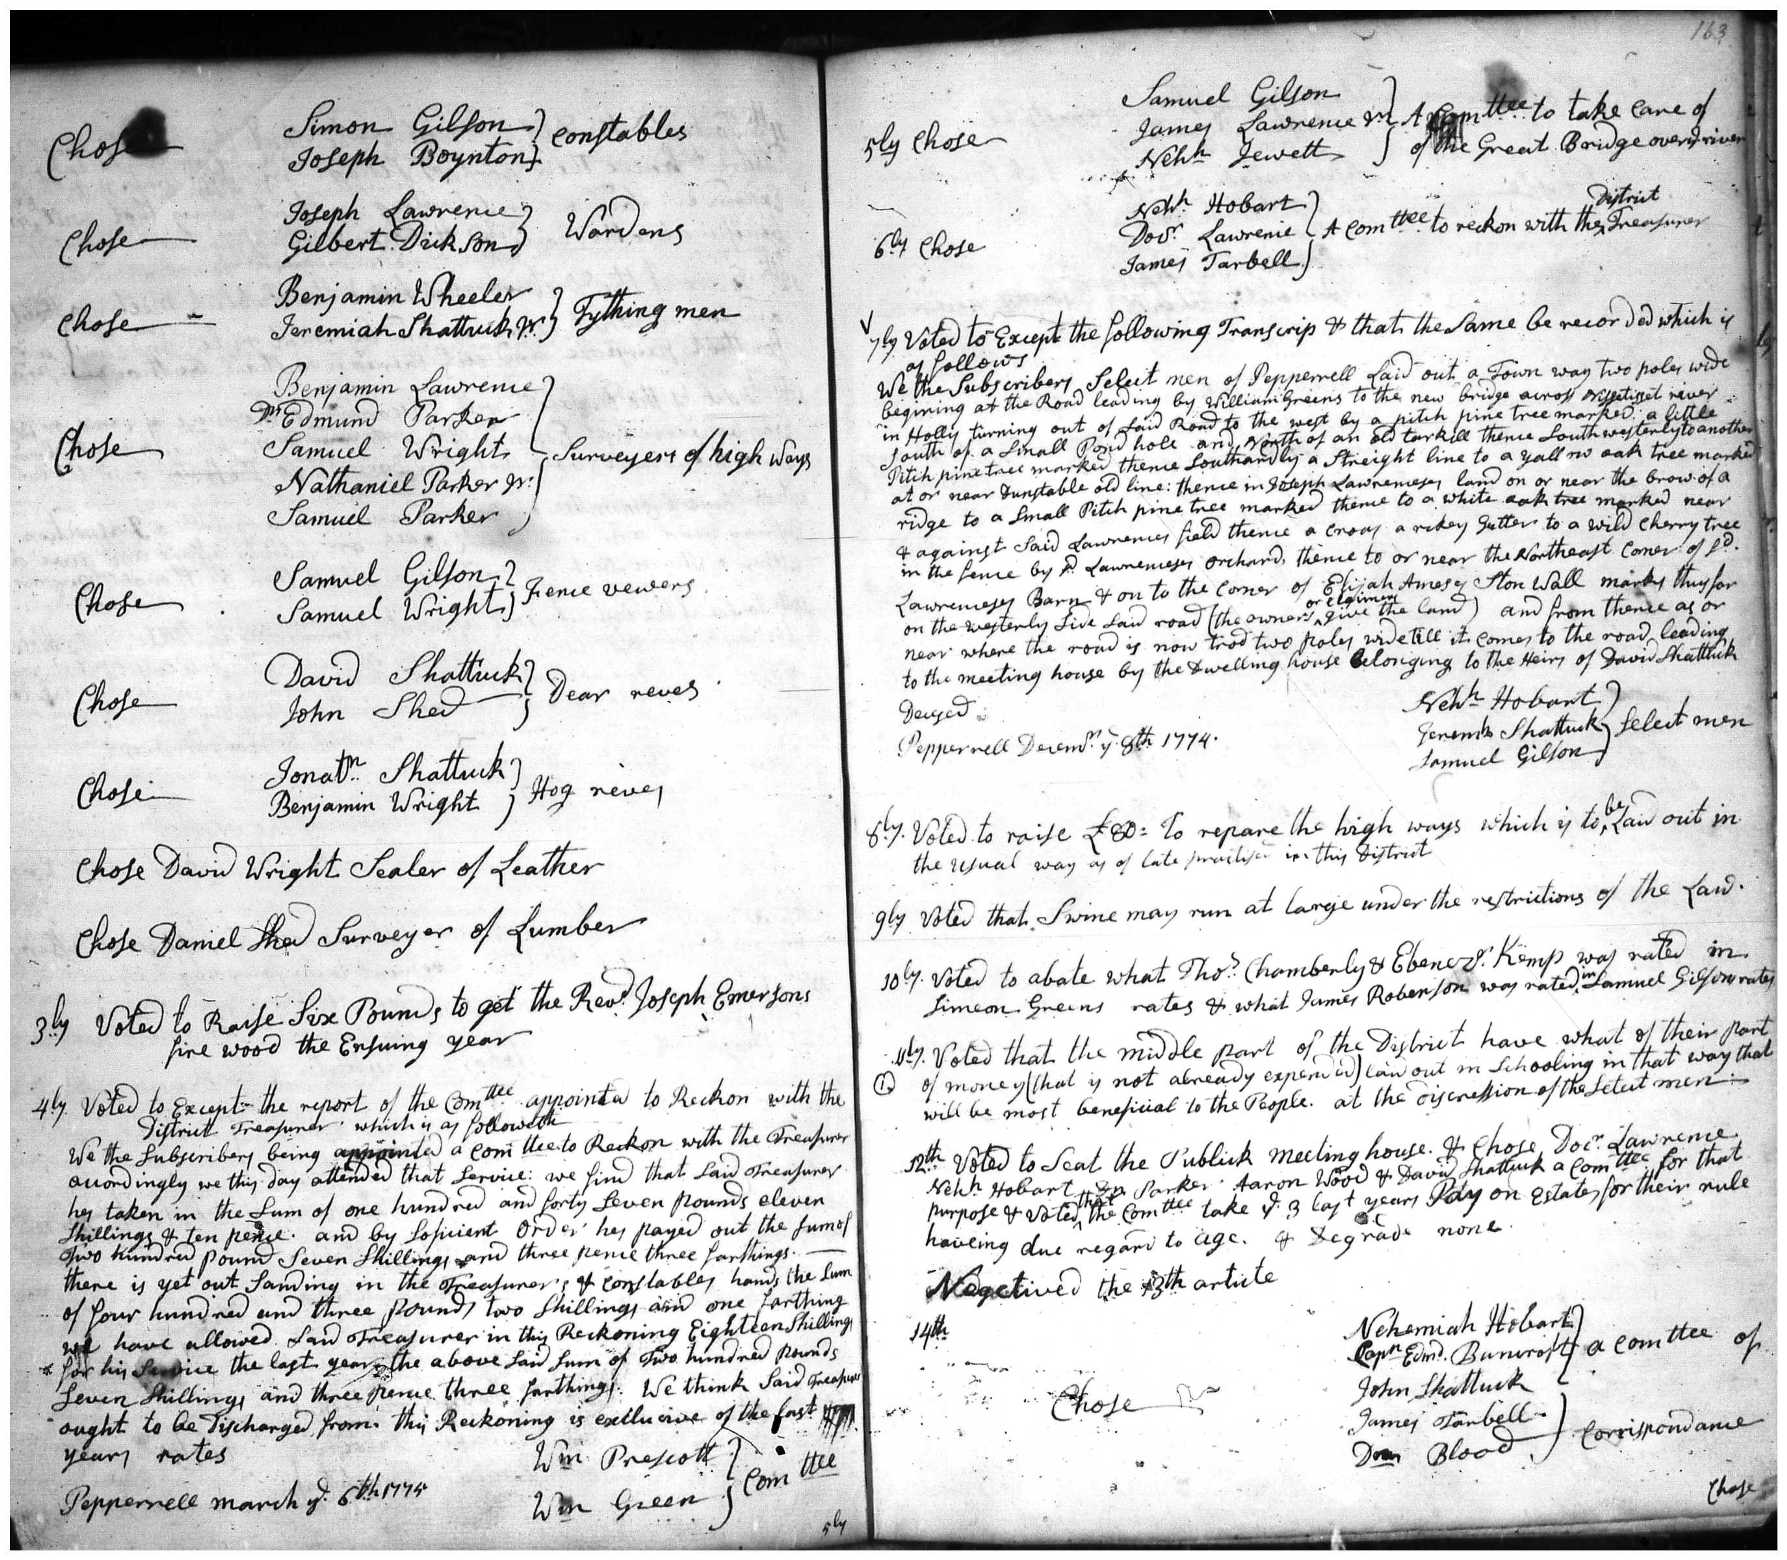 Chose
Simon Gilson
Joseph Boynton
constables
Chose
Joseph Lawrence
Gilbert Dickson
Wardens
Chose
Benjamin Wheeler
Jeremiah Shattuck Jr.
Tything men
Chose
Benjamin Lawrence
Dn Edmund Parker
Samuel Wright
Nathaniel Parker Jr.
Samuel Parker
Surveyers of high Ways
Chose
Samuel Gilson
Samuel Wright
Fence vewers
Chose
David Shattuck
John Shed
Dear reves
Chose
Jonatn Shattuck
Benjamin Wright
Hog reves
Chose David Wright Sealer of Leather
Chose Daniel Shed Surveyer of Lumber
3ly Voted to Raise Six Pounds to get the Revd Joseph Emersons
fire wood the Ensuing year
4ly Voted to Except the report of the Comttee appointed to Reckon with the
District Treasurer which is as followeth
We the Subscribers being appointed a comttee to Reckon with the Treasurer
acordingly we this day attended that Service: we find that Said Treasurer
hes taken in the Sum of one hundred and forty Seven pounds eleven
Shillings & ten pence. and by Soficient Order hes payed out the Sum of
Two hundred pound Seven Shillings and three pence three farthings.
there is yet out Sanding in the Treasurer's & constables hands the Sum
of four hundred and three pounds two Shillings and one farthing
we have allowed Said Treasurer in this Reckoning Eighteen Shillings
for his Service the last year, the above Said Sum of Two hundred pounds
Seven Shillings and three pence three farthings. We think Said Treasurer
ought to be Discharged from. this Reckoning is exclusive of the last
years rates
Wm Prescott
Wm Green
Comttee
Pepperrell march ye. 6th 1775
5ly
163
5ly Chose
Samuel Gilson
James Lawrence Jr
Nehh Jewett
A Comttee to take care of
of the Great Bridge over ye river
6ly Chose
Nehh Hobart
Docr. Lawrence
James Tarbell
District
A Comttee to reckon with the Treasurer
7ly Voted to Except the following Transcrip & that the Same be recorded which is
as follows
We the Subscribers Select men of Pepperrell Laid out a Town way two poles wide
begining at the Road leading by William Greens to the new bridge across Nissitisset river
in Hollis turning out of said Road to the west by a pitch pine tree marked a little
South of a Small Pond hole and North of an old tarkill thence Southwesterly to another
Pitch pine tree marked thence Southardly a Streight line to a yallow oak tree marked
at or near Dunstable old line: thence in Joseph Lawrenceses land on or near the brow of a
ridge to a Small Pitch pine tree marked thence to a white oak tree marked near
& against Said Lawrences field thence a cross a rokey Gutter to a wild cherry tree
in the fence by sd Lawrenceses orchard, thence to or near the Northeast Corner of sd.
Lawrenceses Barn & on to the Corner of Elijah Ameses Ston Wall marks thus for
or claimers
on the westerly Side Said road (the owners give the land) and from thence as or
near where the road is now trod two poles wide till it comes to the road leading
to the meeting house by the Dwelling house belonging to the Heirs of David Shattuck
Decesed
Nehh Hobart
Jeremh Shattuck
Samuel Gilson
Select men
Pepperrell Decemr. ye 8th 1774.
8ly. Voted to raise £80= To repare the high ways which is to be Laid out in
the usual way as of late practised in this District
9ly Voted that Swine may run at large under the restrictions of the Law.
10ly. Voted to abate what Thos. Chamberly & Ebenezr. Kemp was rated in
Simeon Greens rates & what James Roberson was rated in Samuel Gilsons rates
11ly. Voted that the middle part of the District have what of their part
of money (that is not already expended) laid out in Schooling in that way that
will be most beneficial to the People. at the discression of the Select men
12th Voted to Seat the Publick meeting house. & Chose Docr. Lawrence
Nehh Hobart Parker Aaron Wood & David Shattuck a Comttee for that
purpose & Voted that the Comttee take ye 3 last years Pay on Estates for their rule
haveing due regard to age. & Degrade none
Negetived the 13th article
14th
Chose
Nehemiah Hobart
Capn Edmd. Bancroft
John Shattuck
James Tarbell
Dean Blood
a comttee of
Corrispondance
Chose